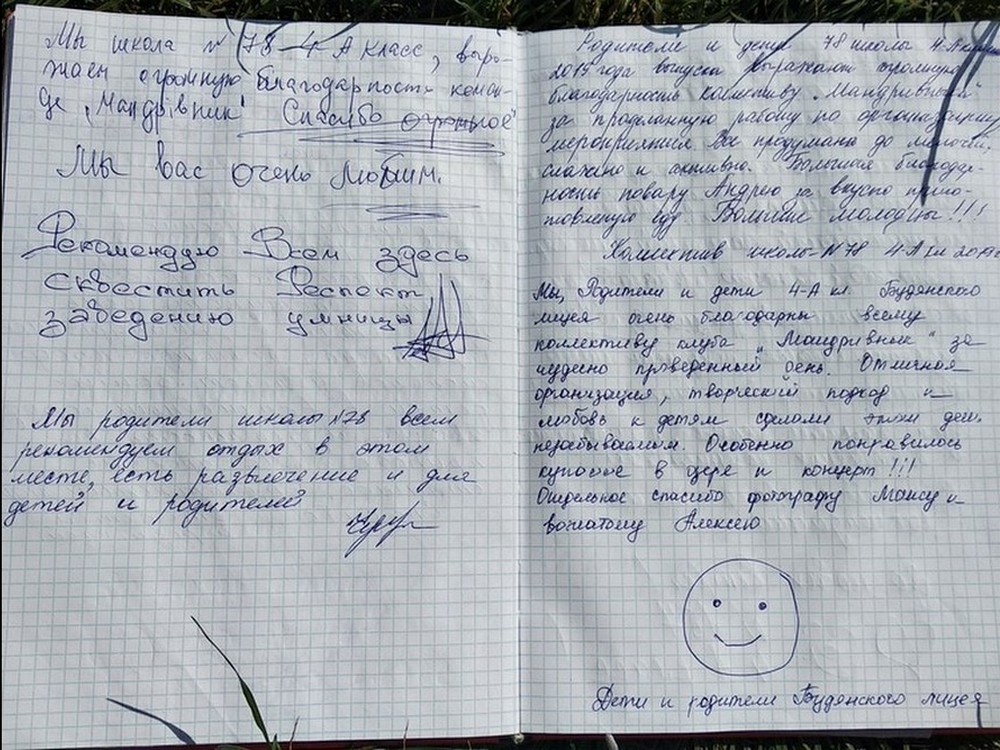 Мы школа №78 4-А класс, выра-
жаем огромную благодарность коман-
де "Мандрівник" Спасибо огромное
Мы вас очень любим.
Рекомендую Всем здесь
Респект
заведению умницы
Мы родители школы №78 всем
рекомендуем отдых в этом
месте, есть развлечение и для
детей и родителей
Родители и дети 78 школы 4-А
2019 года выпуска выражают огромную
благодарность коллективу "Мандривнык"
за проделанную работу по организации
мероприятия. Все продумано до мелочей,
слажено и активно. Большая благодар-
ность повару Андрею за вкусно приго-
товленую еду Большие молодцы!!!
Коллектив школы №78 4-А кл
Мы, Родители и дети 4-А кл. Будянского
лицея очень благодарны всему
коллективу клуба "Мандривнык" за
чудесно проведенный день. Отличная
организация, творческий подход и
любовь к детям сделали этот день
незабываемым. Особенно понравилось
купание в и концерт!!!
Отдельное спасибо фотографу Максу и
вожатому Алексею
Дети и родители Будянского лицея